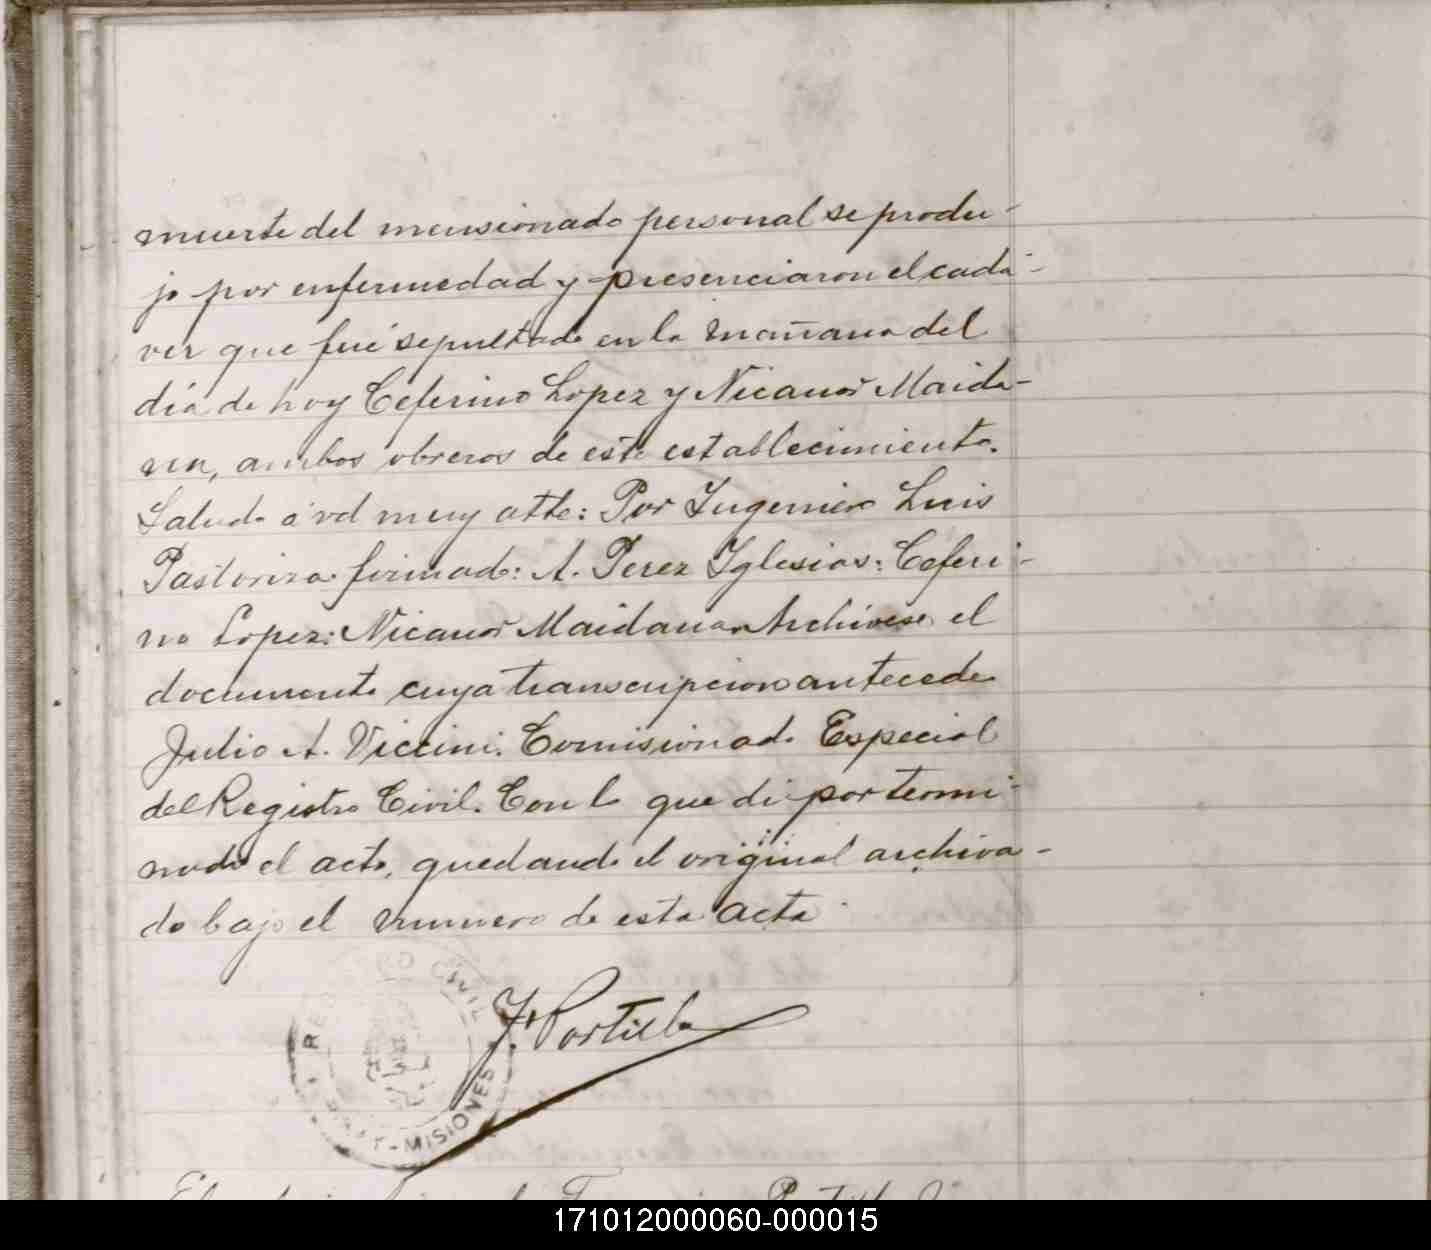 muerte del mensionado personal se produ-
jo por enfermedad y presenciaron el cadá-
ver que fué sepultado en la mañana del
día de hoy Ceferino Lopez y Nicanor Maida-
na, ambos obreros de este establecimiento.
Saludo á vd muy atte: Por Ingeniero Luis
Pastoriza firmado: A. Perez Iglesias: Ceferi-
no Lopez: Nicanor Maidana Archívese el
documento cuya transcripcion antecede
Julio A. Viccini. Comisionado Especial
del Registro Civil. Con lo que di por termi-
nado el acto, quedando el original archiva-
do bajo el numero de esta acta
REGISTRO CIVIL
J. Portillo
MISIONES